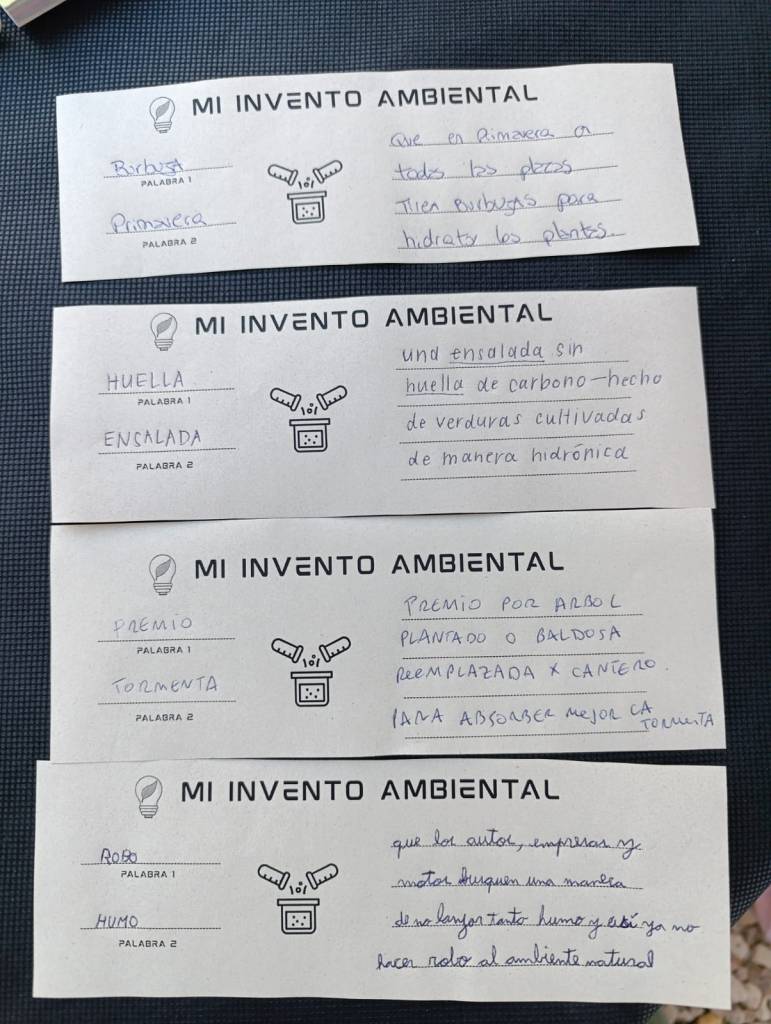 MI INVENTO AMBIENTAL
Birbuja
PALABRA 1
Primavera
PALABRA 2
Que en Primavera en
todas las plazas
Tiren Burbujas para
hidratar las plantas.
MI INVENTO AMBIENTAL
HUELLA
PALABRA 1
ENSALADA
PALABRA 2
una ensalada sin
huella de carbono-hecho
de verduras cultivadas
de manera hidrónica
MI INVENTO AMBIENTAL
PREMIO
PALABRA 1
TORMENTA
PALABRA 2
PREMIO POR ARBOL
PLANTADO O BALDOSA
REEMPLAZADA X CANTERO.
PARA ABSORBER MEJOR LA
TORMENTA
MI INVENTO AMBIENTAL
ROBO
PALABRA 1
HUMO
PALABRA 2
que los autos, empresas y
motos busquen una manera
de no lanzar tanto humo y así ya no
hacer robo al ambiente natural